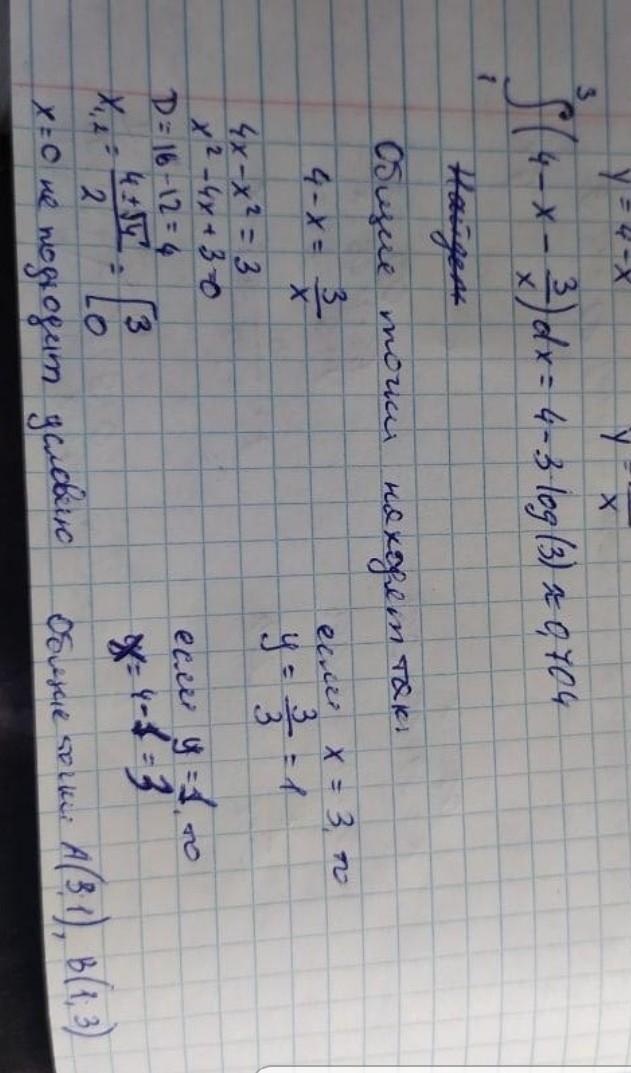 y = 4 - x
y = — x
3 ∫ 1 (4 - x - 3/x) dx = 4 - 3 log(3) ≈ 0,704
Найдем
Общие точки находят так:
4 - x = 3/x
4x - x² = 3
x² - 4x + 3 = 0
D = 16 - 12 = 4
x₁,₂ = (4 ± √4)/2 = [3 0
x = 0 не подходит условию
если x = 3, то
y = 3/3 = 1
если y = 1, то
x = 4 - 1 = 3
Общие точки A(3;1), B(1;3)